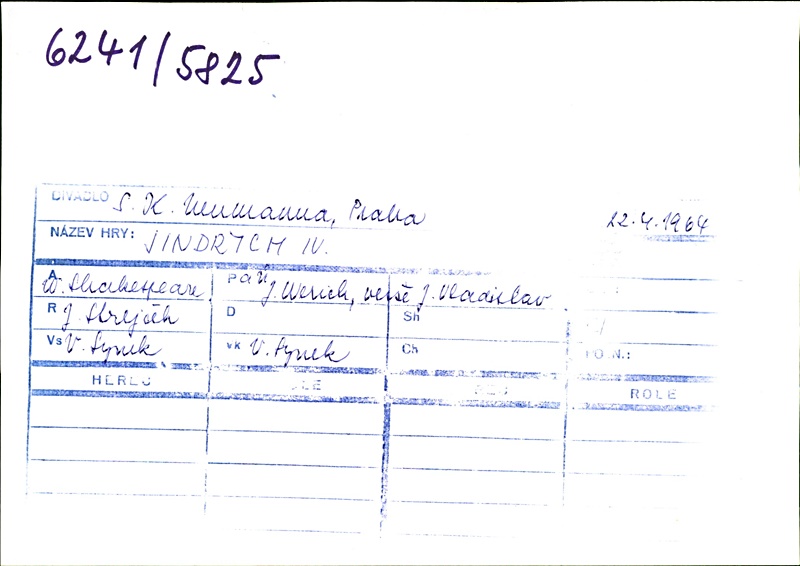 6241/5825
DIVADLO S. K. Neumanna, Praha 22.4.1964
NÁZEV HRY: JINDŘICH IV.
A W. Shakespeare P J. Werich, verše J. Vladislav
R J. Strejček D Sh
Vs V. Synek vk V. Synek Ch PO.N.:
HEREC ROLE